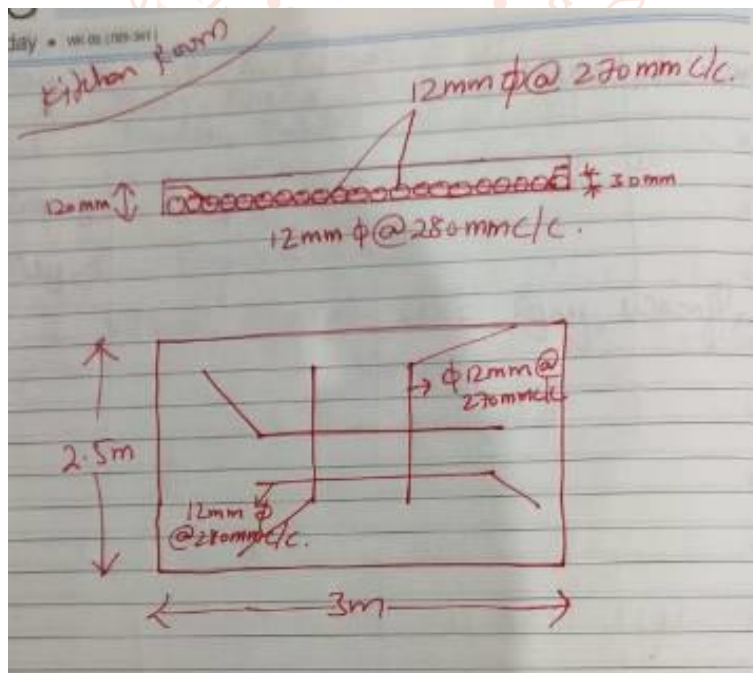 day • WK 05
Kitchen Room
12mm ϕ @ 270mm c/c.
120mm
30mm
12mm ϕ @ 280mm c/c.
ϕ 12mm @
270mm c/c
2.5m
12mm ϕ
@280mm c/c.
3m